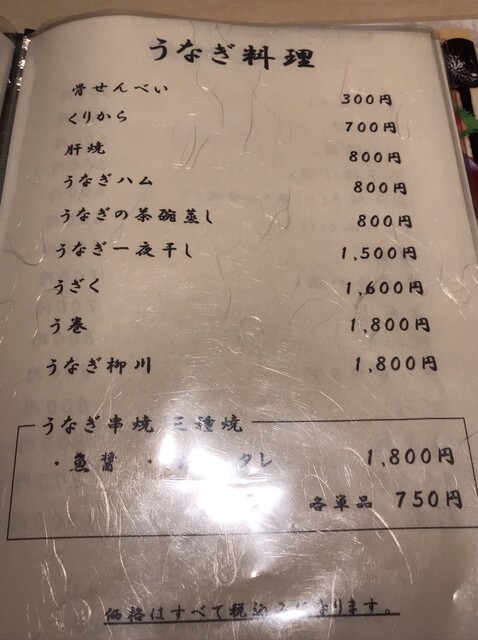 うなぎ料理
骨せんべい 300円
くりから 700円
肝焼 800円
うなぎハム 800円
うなぎの茶碗蒸し 800円
うなぎ一夜干し 1,500円
うざく 1,600円
う巻 1,800円
うなぎ柳川 1,800円
うなぎ串焼 三種焼
・魚醤 ・ タレ 1,800円
各単品 750円
価格はすべて税込みになります。